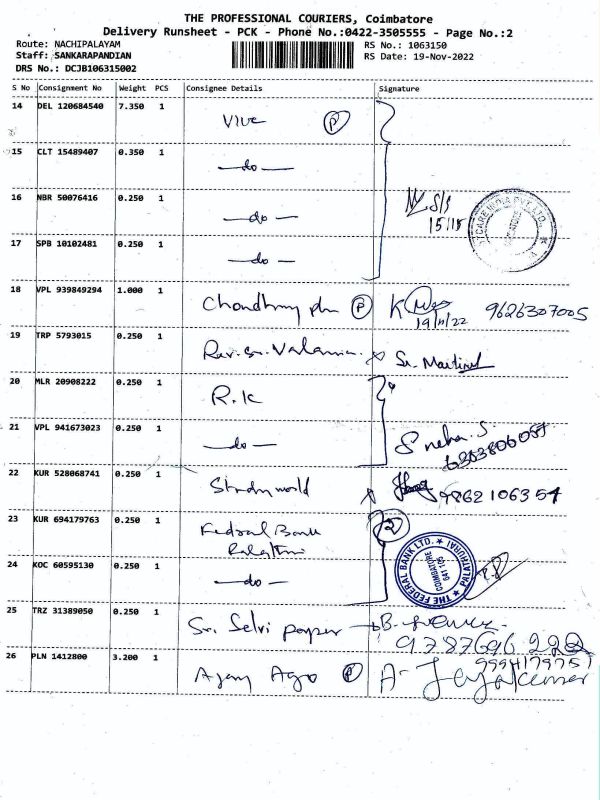 THE PROFESSIONAL COURIERS, Coimbatore
Delivery Runsheet - PCK - Phone No.:0422-3505555 - Page No.:2
Route: NACHIPALAYAM
Staff: SANKARAPANDIAN
DRS No.: DCJB106315002
RS No.: 1063150
RS Date: 19-Nov-2022
S No Consignment No Weight PCS Consignee Details Signature
14 DEL 120684540 7.350 1 Vive P
15 CLT 15489407 0.350 1 —do—
16 NBR 50076416 0.250 1 —do—
17 SPB 10102481 0.250 1 —do—
18 VPL 939849294 1.000 1 P K 19/11/22 9626307005
19 TRP 5793015 0.250 1 Sr.
20 MLR 20908222 0.250 1 R.K
21 VPL 941673023 0.250 1 —do— Sneha.S
22 KUR 528068741 0.250 1 9862106354
23 KUR 694179763 0.250 1 Federal Bank
THE FEDERAL BANK LTD. PALATHURAI
COIMBATORE
641 105
24 KOC 60595130 0.250 1 —do—
25 TRZ 31389050 0.250 1 Sri Selvi paper B.
26 PLN 1412800 3.200 1 Ajay Agro P A- Jeyakumar